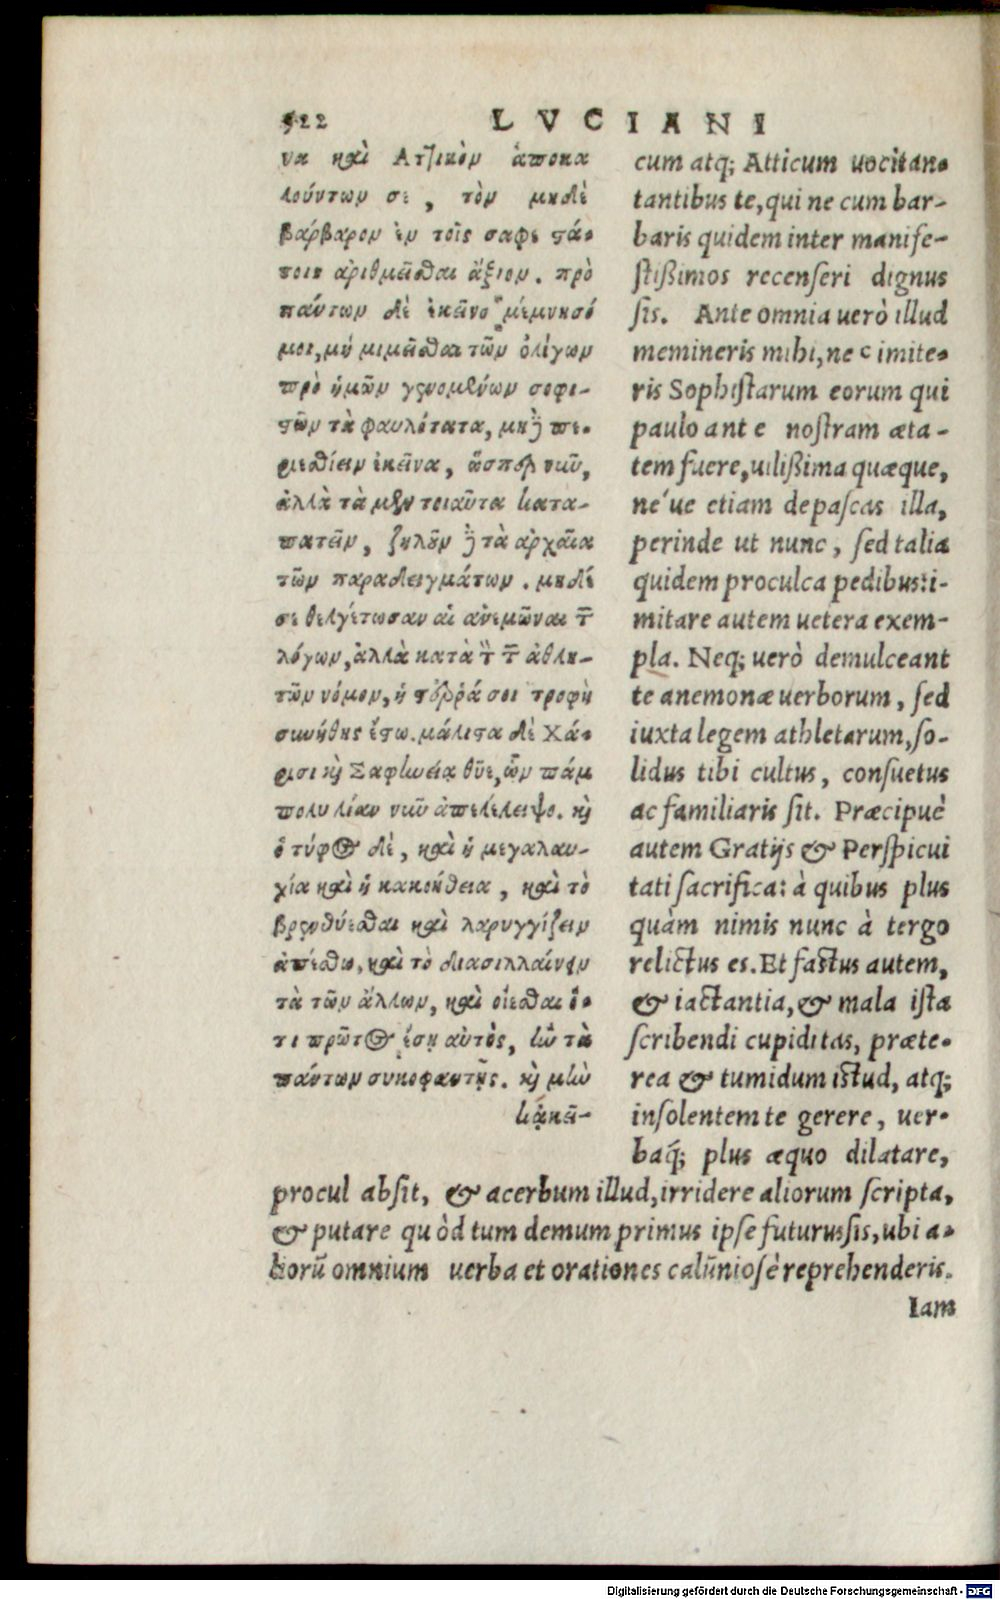 522 LVCIANI
να καὶ Ἀττικὸν ἀποκα
λούντων σε, τὸν μηδὲ
βάρβαρον ἐν τοῖς σαφεστά-
τοις ἀριθμεῖσθαι ἄξιον. πρὸ
πάντων δὲ ἐκεῖνο μέμνησό
μοι, μὴ μιμεῖσθαι τῶν ὀλίγων
πρὸ ἡμῶν γενομένων σοφι-
στῶν τὰ φαυλότατα, μηδὲ πε-
ριεσθίειν ἐκεῖνα, ὥσπερ νῦν,
ἀλλὰ τὰ μὲν τοιαῦτα κατα-
πατεῖν, ζηλοῦν δὲ τὰ ἀρχαῖα
τῶν παραδειγμάτων. μηδέ
σε θελγέτωσαν αἱ ἀνεμῶναι τῶν
λόγων, ἀλλὰ κατὰ τὸν τῶν ἀθλη-
τῶν νόμον, ἡ στεῤῥά σοι τροφὴ
συνήθης ἔστω. μάλιστα δὲ Χά-
ρισι καὶ Σαφηνείᾳ θῦε, ὧν πάμ
πολυ λίαν νῦν ἀπελέλειψο. καὶ
ὁ τύφος δὲ, καὶ ἡ μεγαλαυ-
χία καὶ ἡ κακοήθεια, καὶ τὸ
βρενθύεσθαι καὶ λαρυγγίζειν
ἀπέσθω, καὶ τὸ διασιλλαίνειν
τὰ τῶν ἄλλων, καὶ οἴεσθαι ὅ-
τι πρῶτος ἔσῃ αὐτὸς, ἢν τὰ
πάντων συκοφαντῇς. καὶ μὴν
κἀκεῖ-
cum atq; Atticum uocitan-
tantibus te, qui ne cum bar-
baris quidem inter manife-
stißimos recenseri dignus
sis. Ante omnia uerò illud
memineris mihi, nec imite-
ris Sophistarum eorum qui
paulo ante nostram æta-
tem fuere, uilißima quæque,
ne´ue etiam depascas illa,
perinde ut nunc, sed talia
quidem proculca pedibus: i-
mitare autem uetera exem-
pla. Neq; uerò demulceant
te anemonæ uerborum, sed
iuxta legem athletarum, so-
lidus tibi cultus, consuetus
ac familiaris sit. Præcipuè
autem Gratijs & Perspicui
tati sacrifica: à quibus plus
quàm nimis nunc à tergo
relictus es. Et fastus autem,
& iactantia, & mala ista
scribendi cupiditas, præte-
rea & tumidum istud, atq;
insolentem te gerere, uer-
baq́; plus æquo dilatare,
procul absit, & acerbum illud, irridere aliorum scripta,
& putare quòd tum demum primus ipse futurus sis, ubi a-
liorũ omnium uerba et orationes calũniosè reprehenderis.
Iam
Digitalisierung gefördert durch die Deutsche Forschungsgemeinschaft - DFG